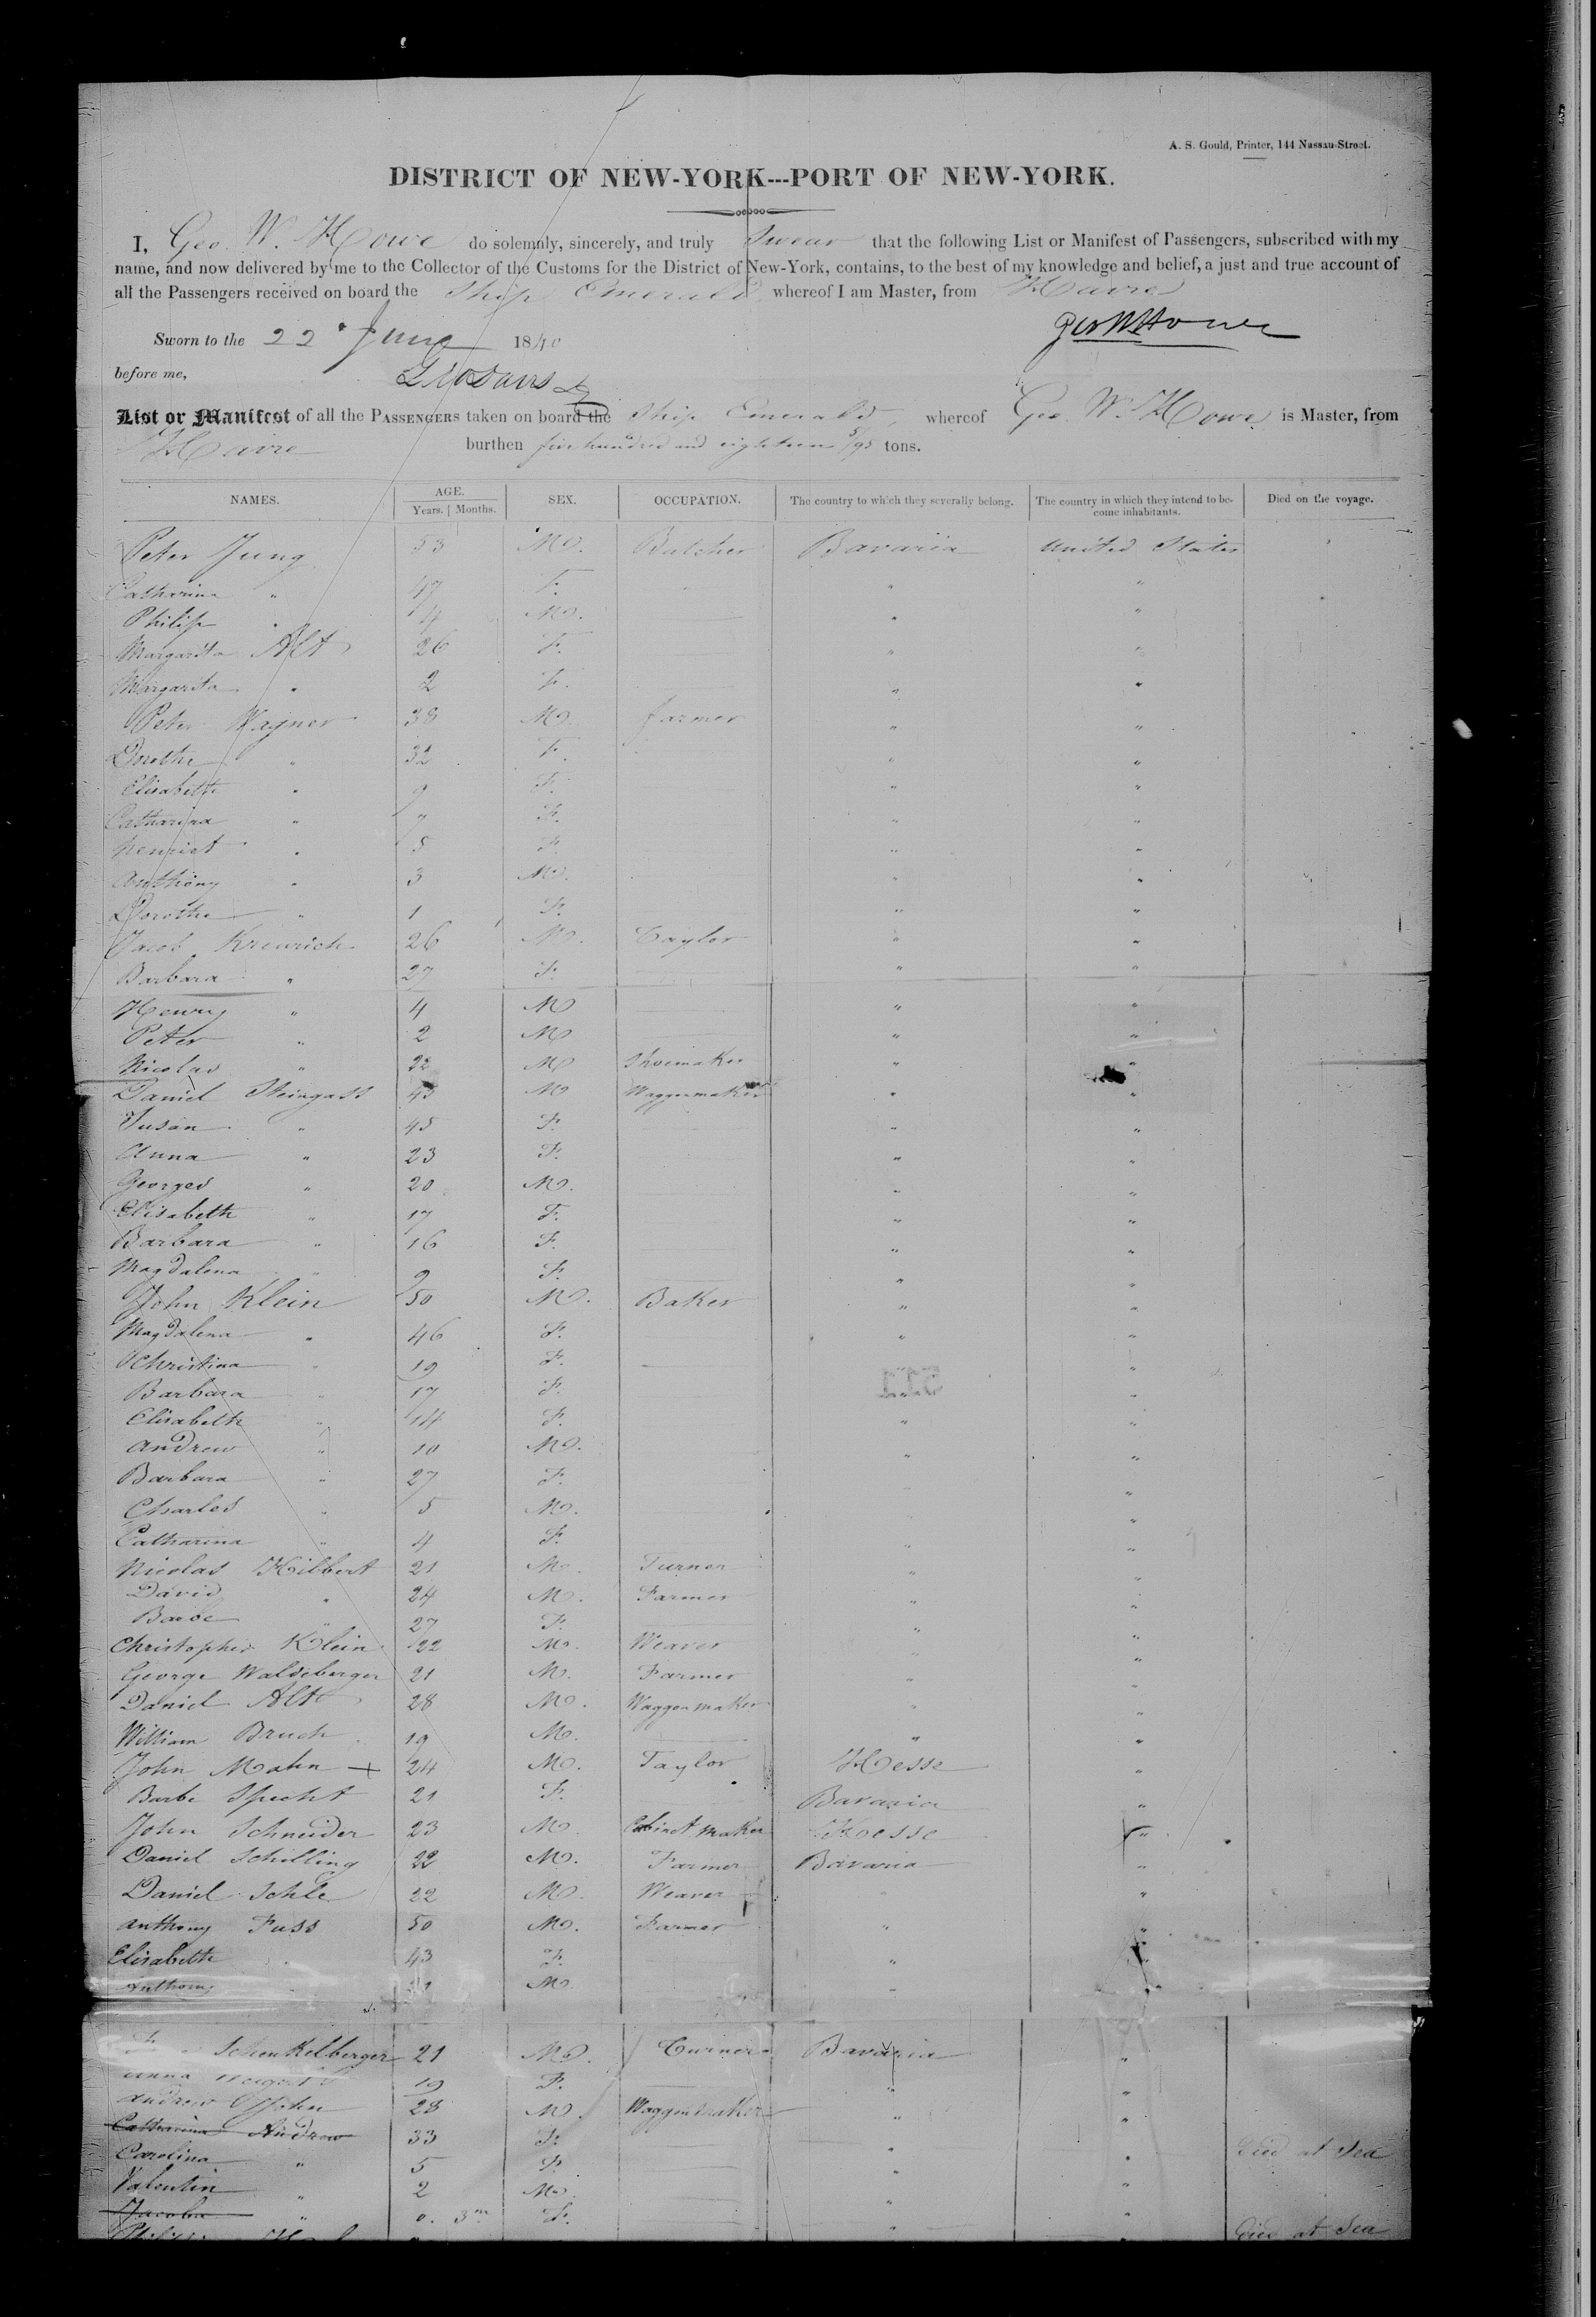 A. S. Gould, Printer, 144 Nassau-Street.
DISTRICT OF NEW-YORK---PORT OF NEW-YORK.
I, Geo. W. Howe do solemnly, sincerely, and truly Swear that the following List or Manifest of Passengers, subscribed with my
name, and now delivered by me to the Collector of the Customs for the District of New-York, contains, to the best of my knowledge and belief, a just and true account of
all the Passengers received on board the Ship Emerald whereof I am Master, from Havre
Geo W Howe
Sworn to the 22d June 1840
before me,
List or Manifest of all the PASSENGERS taken on board the Ship Emerald, whereof Geo. W. Howe is Master, from
Havre burthen five hundred and eighteen 5/95 tons.
NAMES. AGE. Years. Months. SEX. OCCUPATION. The country to which they severally belong. The country in which they intend to become inhabitants. Died on the voyage.
Peter Jung 53 M. Butcher Bavaria United States
Catharina " 47 F. " "
Philip " 14 M. " "
Margarita Alt 26 F. " "
Margarita " 2 F. " "
Peter Wagner 38 M. farmer " "
Dorothe " 32 F. " "
Elisabeth " 9 F. " "
Catharina " 7 F. " "
Henriet " 5 F. " "
Anthony " 3 M. " "
Dorothe " 1 F. " "
Jacob Kreurich 26 M. Taylor " "
Barbara " 27 F. " "
Henry " 4 M " "
Peter " 2 M " "
Nicolas " 32 M Shoemaker " "
Daniel Steingass 45 M Waggenmaker " "
Susan " 45 F. " "
Anna " 23 F. " "
Georges " 20 M. " "
Elisabeth " 17 F. " "
Barbara " 16 F. " "
Magdalena " 9 F. " "
John Klein 50 M. Baker " "
Magdalena " 46 F. " "
Christina " 19 F. "
Barbara " 17 F. "
Elisabeth " 14 F. " "
Andrew " 10 M. " "
Barbara " 27 F. " "
Charles " 5 M. " "
Catharina " 4 F. " "
Nicolas Hibbert 21 M. Turner " "
David " 24 M. Farmer " "
Barbe " 27 F. " "
Christopher Klein 22 M. Weaver " "
George Waldeberger 21 M. Farmer " "
Daniel Alt 28 M. Waggenmaker " "
William Bruch 19 M. " "
John Mahn + 24 M. Taylor Hesse "
Barbe Specht 21 F. Bavaria "
John Schneider 23 M Cabinet maker Hesse "
Daniel Schilling 22 M. Farmer Bavaria "
Daniel Schle 22 M. Weaver " "
Anthony Fuss 50 M. Farmer " "
Elisabeth " 43 F. " "
Anthony M "
Schenkelberger 21 M. Turner Bavaria "
Anna 19 F. " "
Andrew John 28 M. Waggenmaker " "
Catharina Andrew 33 F. " " Died at Sea
Carolina " 5 F. " "
Valentin " 2 M. " "
Jacoba " 0. 3m F. " " Died at Sea